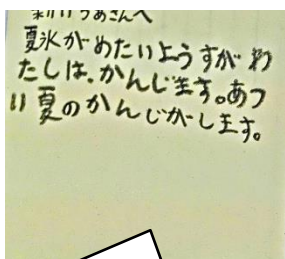 新いつあさんへ
夏氷がめたいようすがわ
たしは、かんじます。あつ
い夏のかんじがします。